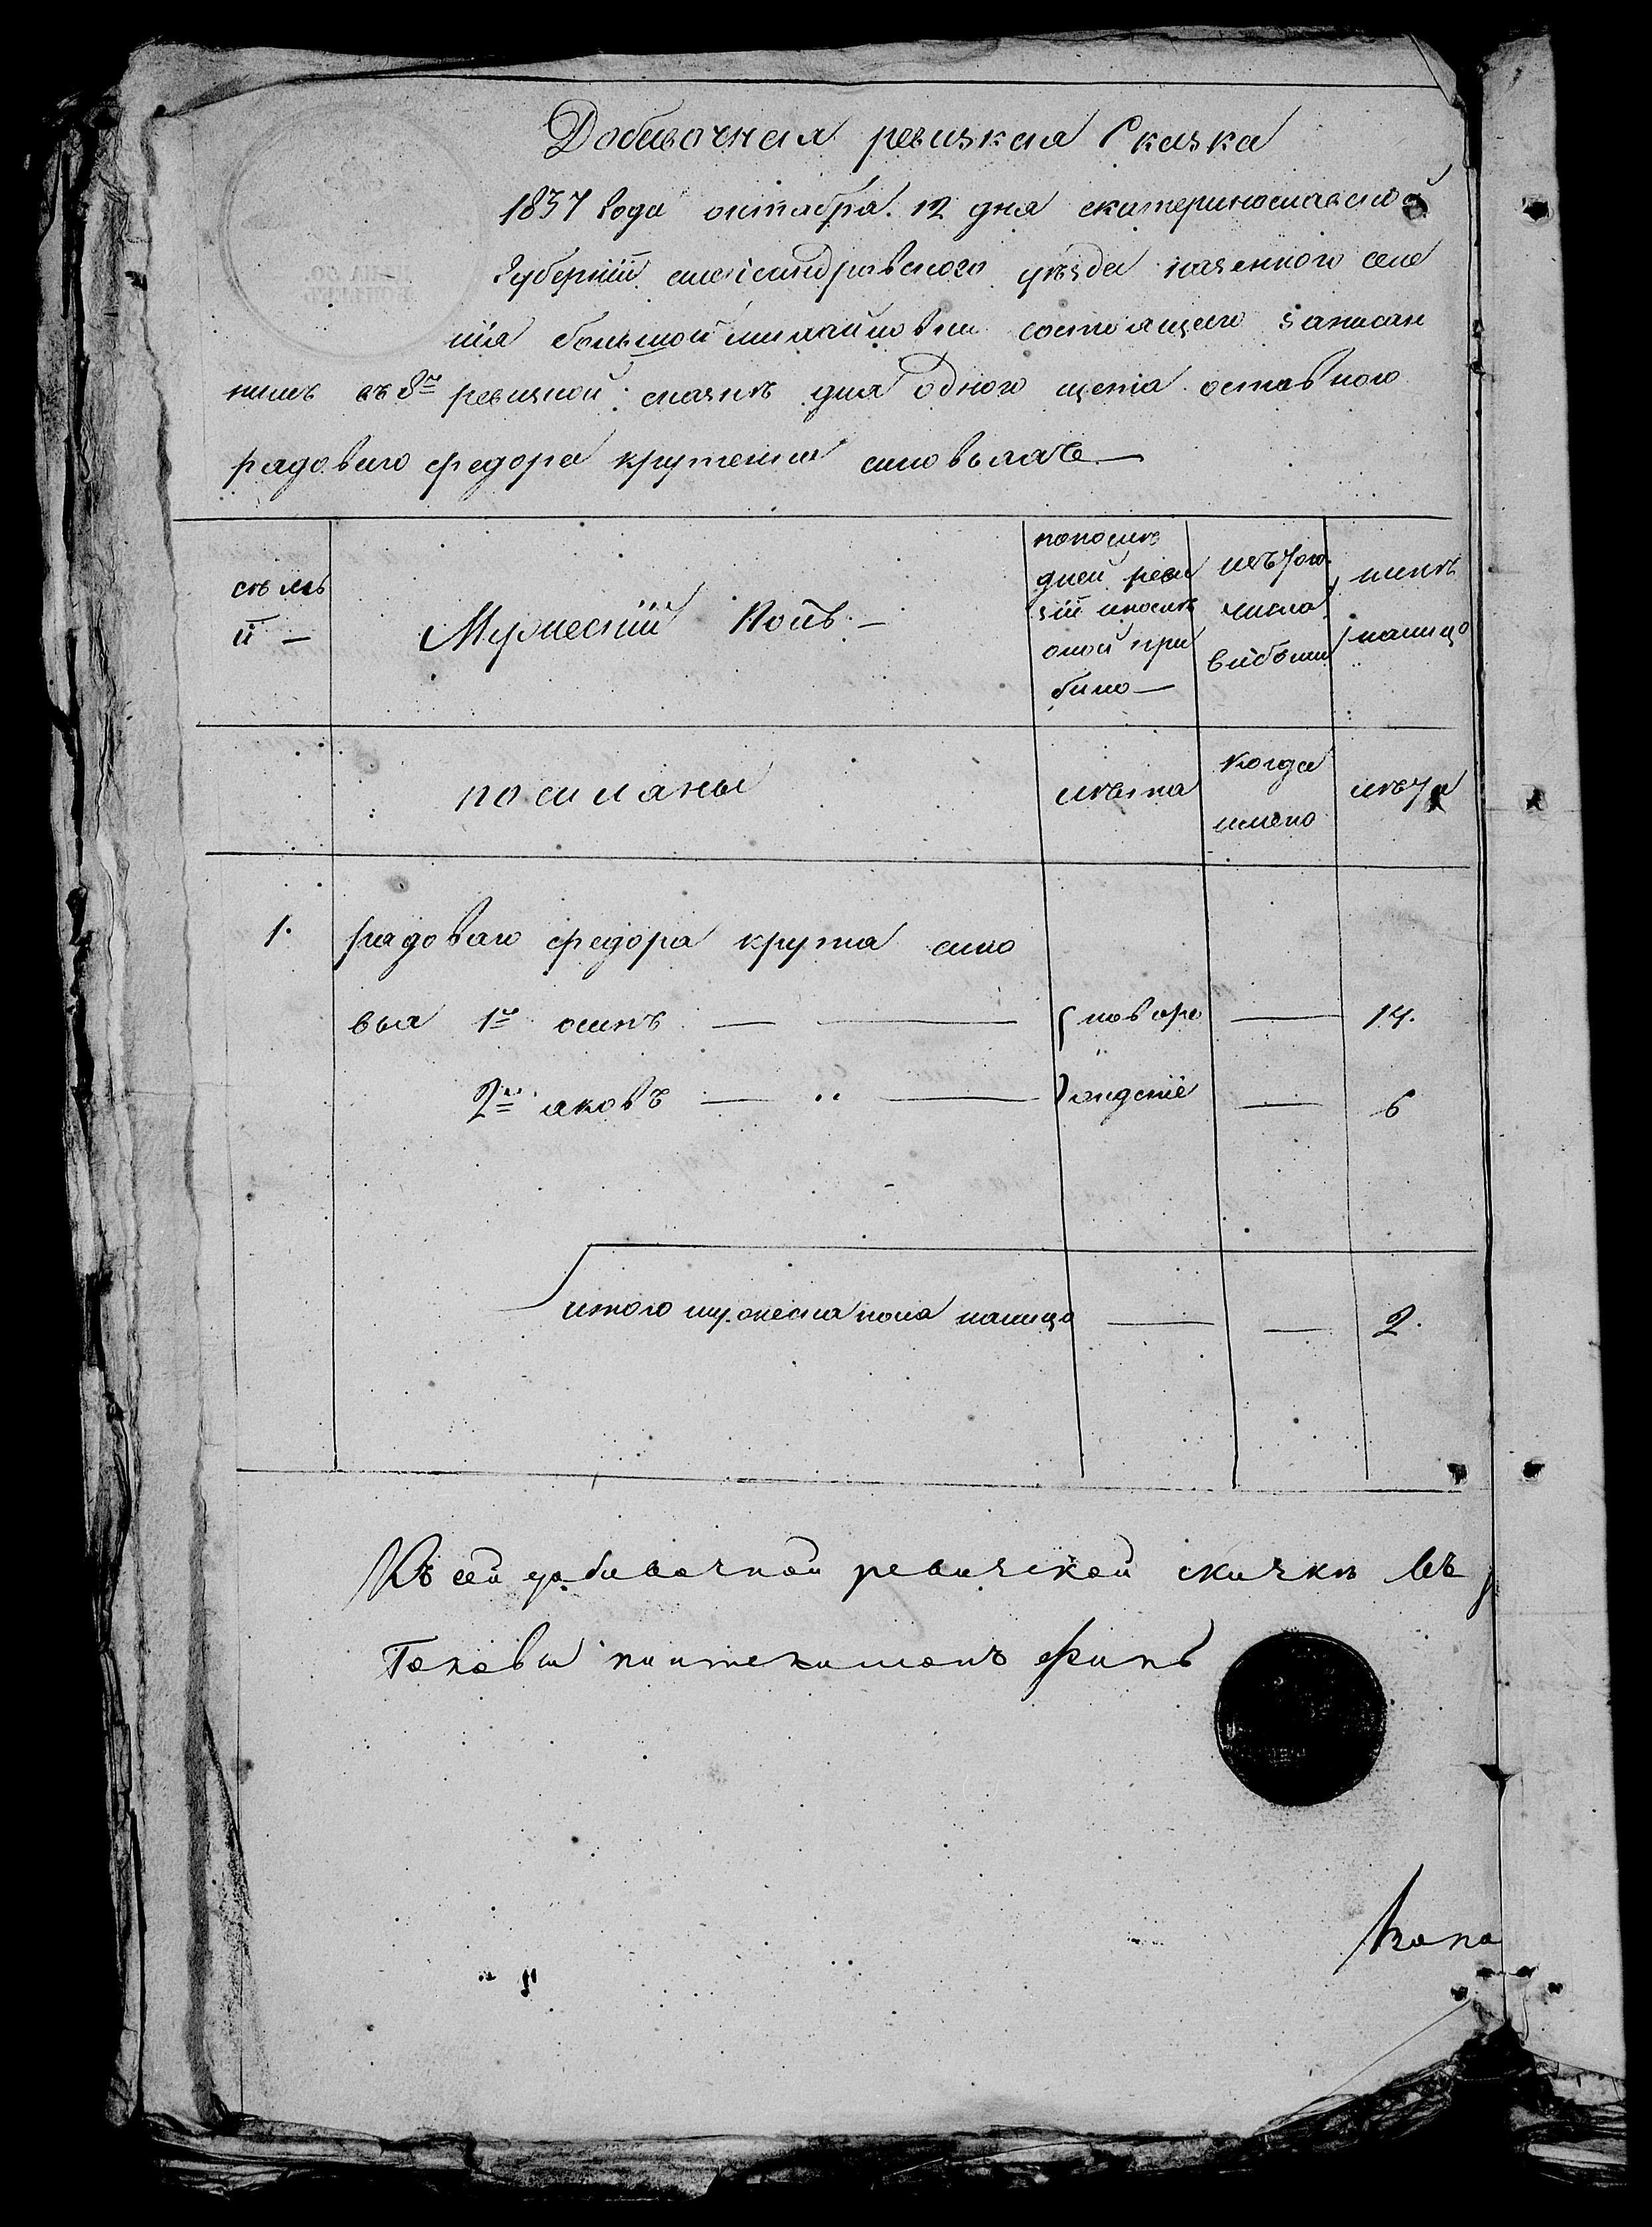 Добавочная ревизкая Сказка
1837 года октября 12 дня екатеринославской
Губерніи александровского уѣзда казенного селе
нія большой михайловки состоящего записан
нимъ въ 8й ревизкой сказкѣ для одного щета оставного
радоваго федора крутенка синовьяхъ
сѣмъ
и —
Мужескій Полъ —
последней ревизіи и после оной прибило —
изъ того числа выбыли
нинѣ налицо
поселяны
лѣта
когда имено
лѣта
1. радоваго федора крута сино
вья 1й осипъ — новоро — 14.
2й яковъ — „ — жденіе — 6
итого мужеска пола налицо — — 2.
Къ сей добавочной ревизской сказкѣ